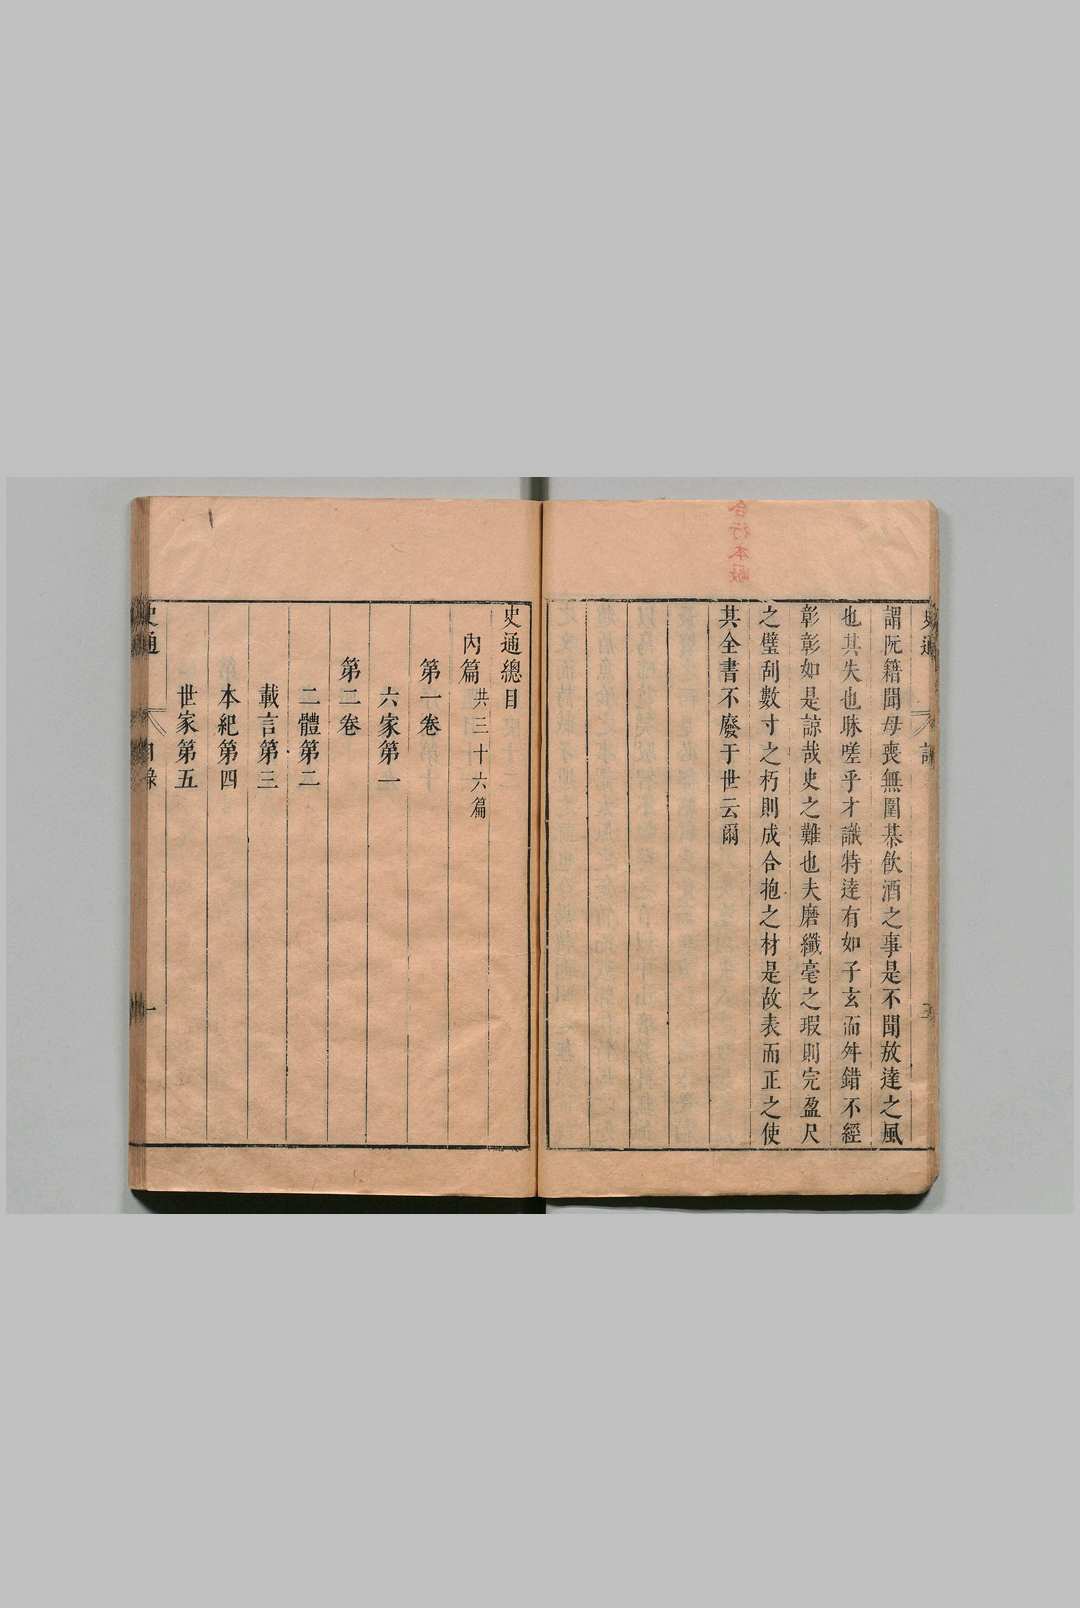 謂阮籍聞母喪無圍棊飲酒之事是不聞放達之風
也其失也昧嗟乎才識特達有如子玄而舛錯不經
彰彰如是諒哉史之難也夫磨纖毫之瑕則完盈尺
之璧刮數寸之朽則成合抱之材是故表而正之使
其全書不廢于世云爾
史通總目
內篇 共三十六篇
第一卷
六家第一
第二卷
二體第二
載言第三
本紀第四
世家第五
史通 目錄 一